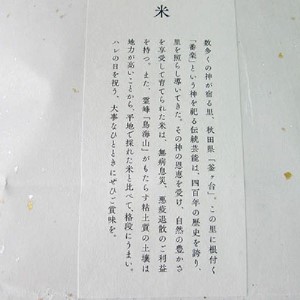 米
数多くの神が宿る里、秋田県「釜ヶ台」、この里に根付く
「番楽」という神を祀る伝統芸能は、四百年の歴史を誇り、
里を照らし導いてきた。その神の恩恵を受け、自然の豊かさ
を享受して育てられた米は、無病息災、悪疫退散のご利益
を持つ。また、霊峰「鳥海山」がもたらす粘土質の土壌は
地力が高いことから、平地で採れた米と比べて、格段にうまい。
ハレの日を祝う、大事なひとときにぜひご賞味を。